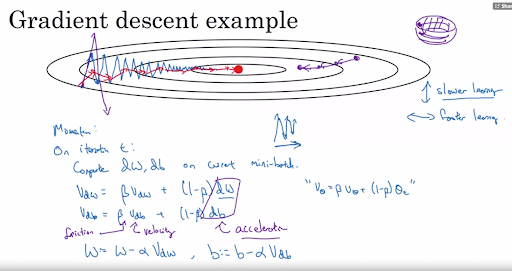 Shar
Gradient descent example
slower learning
faster learning
Momentum:
On iteration t:
Compute dW, db on current mini-batch.
Vdw = β Vdw + (1-β) dW
"Vθ = β Vθ + (1-β) θt"
Vdb = β Vdb + (1-β) db
friction ↑ velocity ↑ acceleration
W = W - α Vdw , b := b - α Vdb